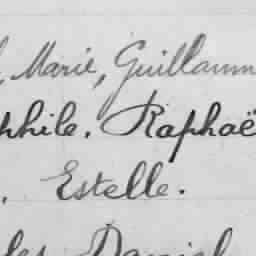 , Marie, Guillaum
phile. Raphaë
. Estelle.
les Daniel